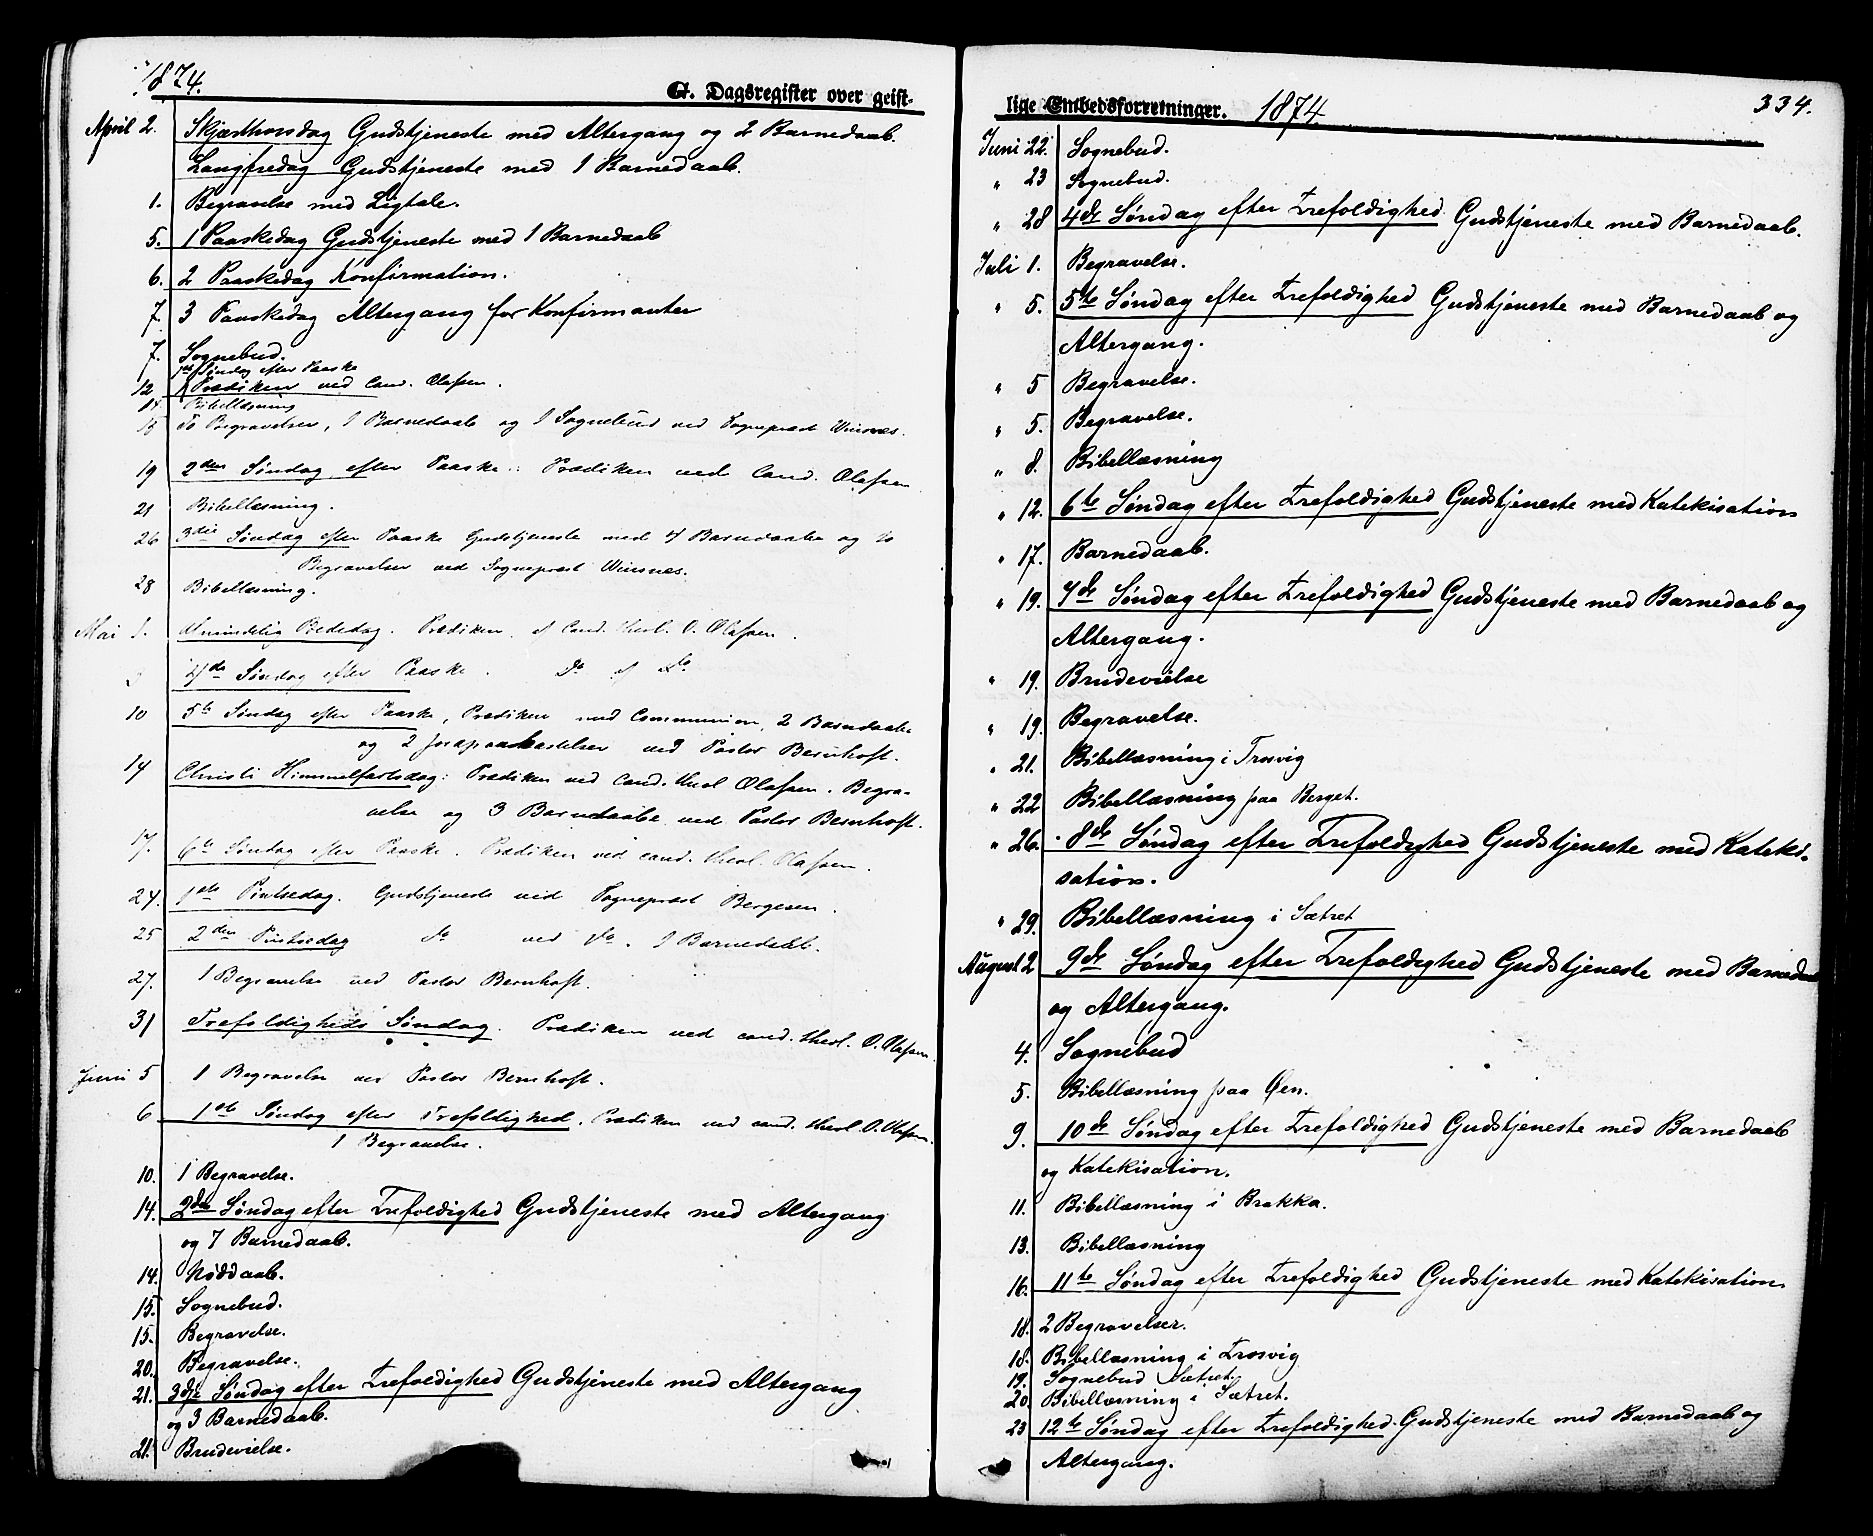 1874.
G. Dagsregister over geist-
April 2. Skjærthorsdag Gudstjeneste med Altergang og 2 Barnedaab.
Langfredag Gudstjeneste med 1 Barnedaab.
1. Begravelse med Ligtale.
5. 1 Paaskedag Gudstjeneste med 1 Barnedaab
6. 2 Paaskedag Konfirmation.
7. 3 Paaskedag Altergang for Konfirmanter
7. Sognebud.
1ste Søndag efter Paaske
12 Prædiken ved Cand. Olafsen.
14. Bibellæsning
15 To Begravelser, 1 Barnedaab og 1 Sognebud ved Sogneprest Winsnes.
19 2den Søndag efter Paaske: Prædiken ved Cand. Olafsen
21 Bibellæsning.
26 3die Søndag efter Paaske Gudstjeneste med 4 Barnedaabe og to
Begravelser ved Sogneprest Winsnes.
28 Bibellæsning.
Mai 1. Almindelig Bededag. Prædiken af Cand. theol. O. Olafsen.
3 4de Søndag efter Paaske. Do af Do
10 5te Søndag efter Paaske, Prædiken med Communion, 2 Barnedaabe
og 2 Jordpaakastelser ved Pastor Bernhoft.
14 Christi Himmelfartsdag: Prædiken ved Cand. theol Olafsen. Begra-
velse og 3 Barnedaabe ved Pastor Bernhoft.
17. 6te Søndag efter Paaske. Prædiken ved cand. theol. Olafsen.
24. 1ste Pintsedag. Gudstjeneste ved Sogneprest Bergesen.
25 2den Pintsedag do ved do. 1 Barnedaab.
27. 1 Begravelse ved Pastor Bernhoft.
31 Trefoldigheds Søndag. Prædiken ved cand. theol. O. Olafsen.
Juni 5 1 Begravelse ved Pastor Bernhoft.
6 1ste Søndag efter Trefoldighed. Prædiken ved cand. theol O. Olafsen.
1 Begravelse.
10. 1 Begravelse.
14. 2den Søndag efter Trefoldighed Gudstjeneste med Altergang
og 7 Barnedaab.
14. Nøddaab.
15. Sognebud.
15. Begravelse.
20. Begravelse.
21. 3dje Søndag efter Trefoldighed Gudstjeneste med Altergang
og 3 Barnedaab.
21. Brudevielse.
lige Embedsforretninger. 1874
334.
Juni 22. Sognebud.
" 23 Sognebud.
" 28 4de Søndag efter Trefoldighed Gudstjeneste med Barnedaab.
Juli 1. Begravelse.
" 5. 5te Søndag efter Trefoldighed Gudstjeneste med Barnedaab og
Altergang.
" 5 Begravelse.
" 5. Begravelse.
" 8. Bibellæsning
" 12. 6te Søndag efter Trefoldighed Gudstjeneste med Katekisation
" 17. Barnedaab.
" 19. 7de Søndag efter Trefoldighed Gudstjeneste med Barnedaab og
Altergang.
" 19. Brudevielse
" 19. Begravelse.
" 21. Bibellæsning i Trosvig
" 22 Bibellæsning paa Berget.
" 26. 8de Søndag efter Trefoldighed Gudstjeneste med Kateki-
sation.
" 29. Bibellæsning i Sætret
August 2 9de Søndag efter Trefoldighed Gudstjeneste med Barnedaab
og Altergang.
4. Sognebud
5. Bibellæsning paa Øen.
9. 10de Søndag efter Trefoldighed Gudstjeneste med Barnedaab
og Katekisation.
11. Bibellæsning i Brakka.
13. Bibellæsning
16. 11te Søndag efter Trefoldighed Gudstjeneste med Katekisation
18. 2 Begravelser.
18. Bibellæsning i Trosvig
19. Sognebud Sætret.
20. Bibellæsning i Sætret.
23 12te Søndag efter Trefoldighed. Gudstjeneste med Barnedaab og
Altergang.